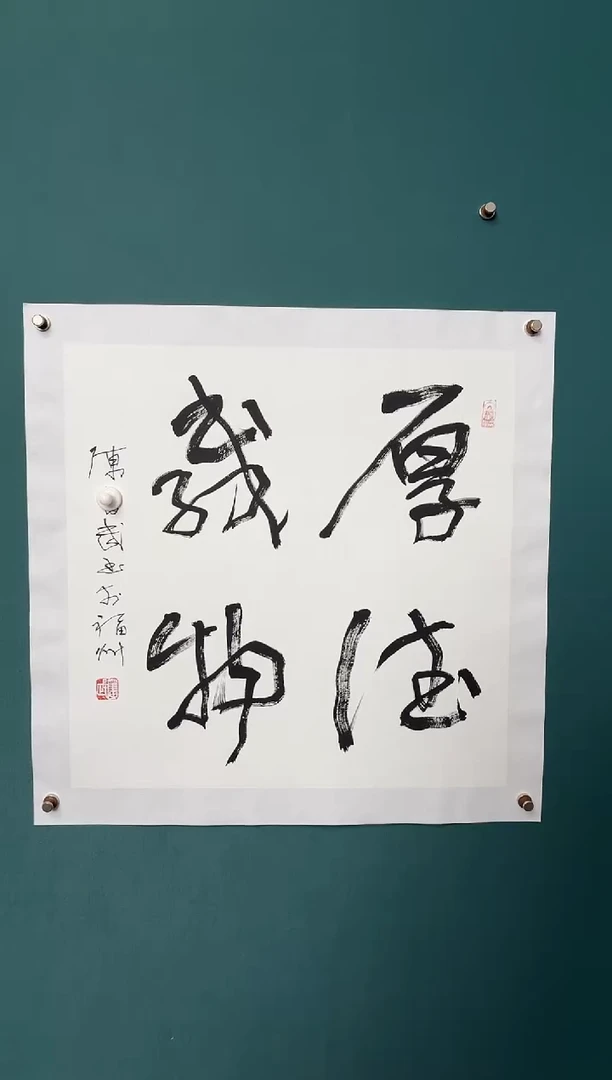 厚德
载物
陈武书于福州